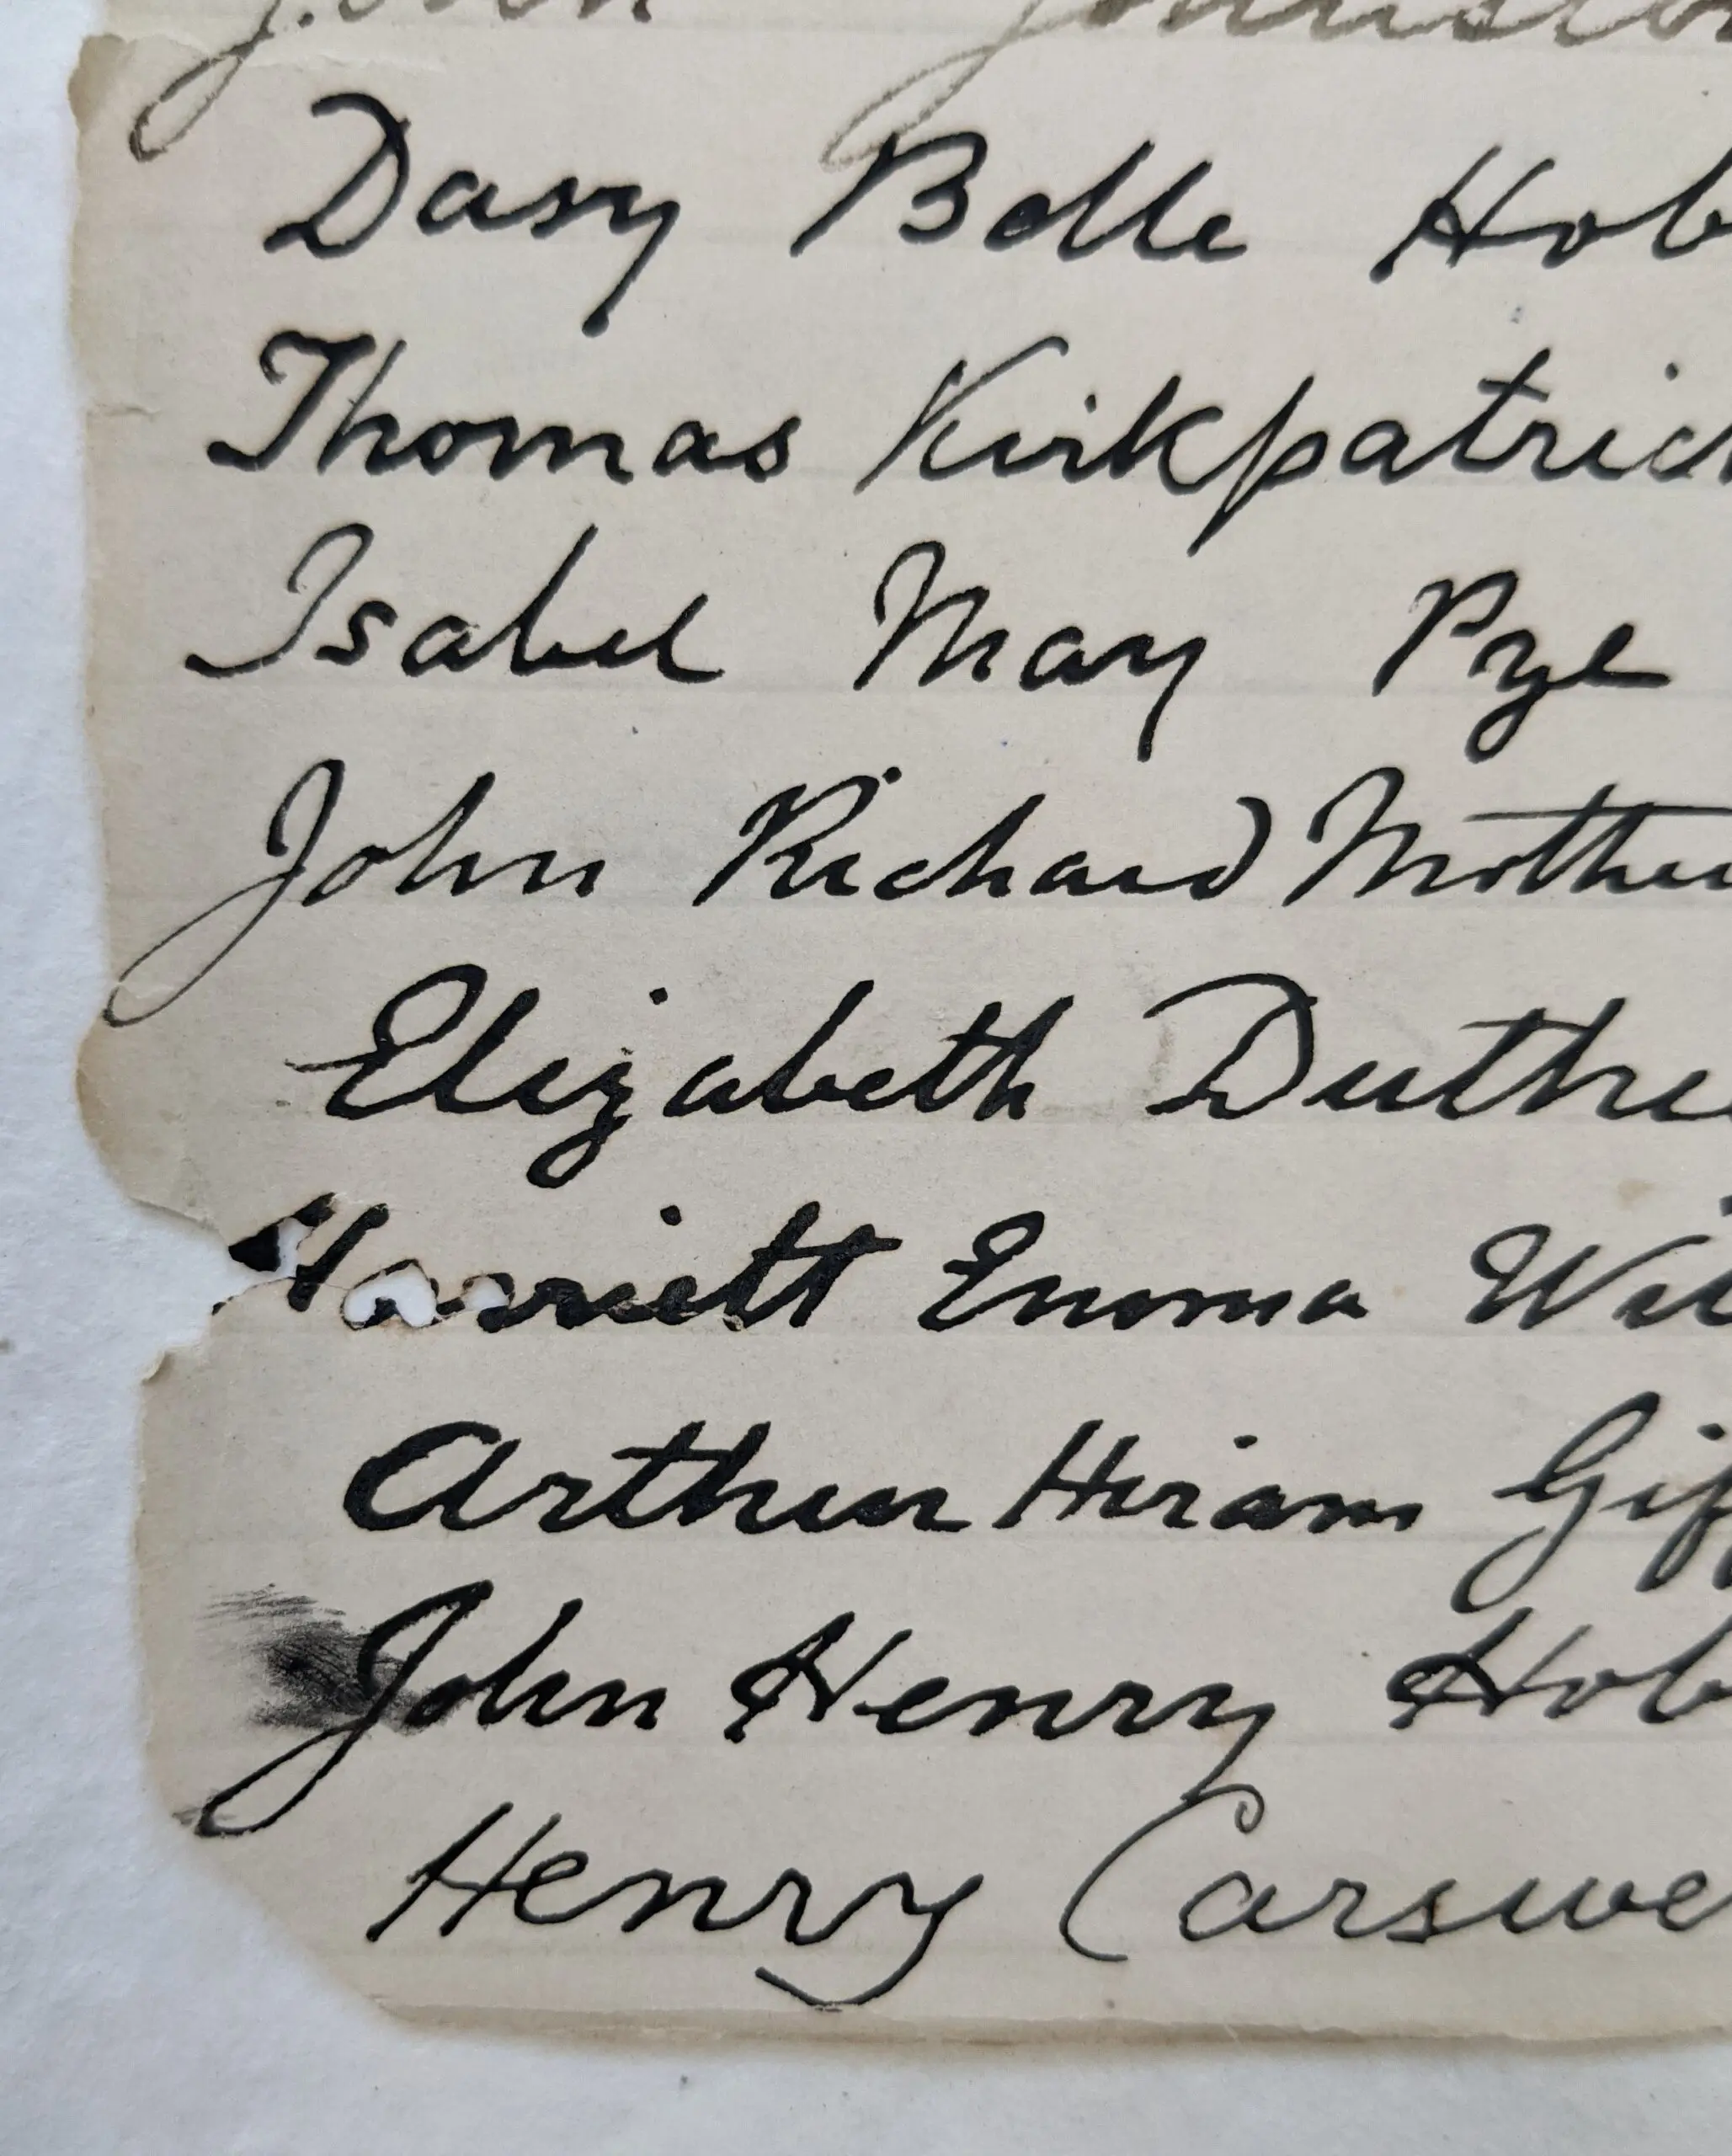 John Johnston
Dasy Belle Hob
Thomas Kirkpatrick
Isabel May Pye
John Richard Mother
Elizabeth Duthie
Harriett Emma Wil
Arthur Hiram Gif
John Henry Hob
Henry Carswe